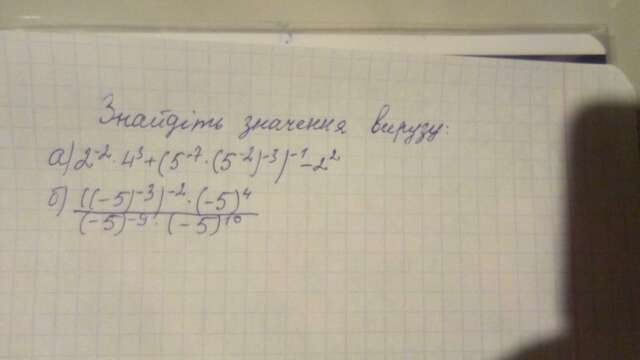 Знайдіть значення виразу:
а) 2⁻²·4³+(5⁻⁷·(5⁻²)⁻³)⁻¹-2²
б) ((-5)⁻³)⁻²·(-5)⁴
(-5)⁻⁹·(-5)¹⁸